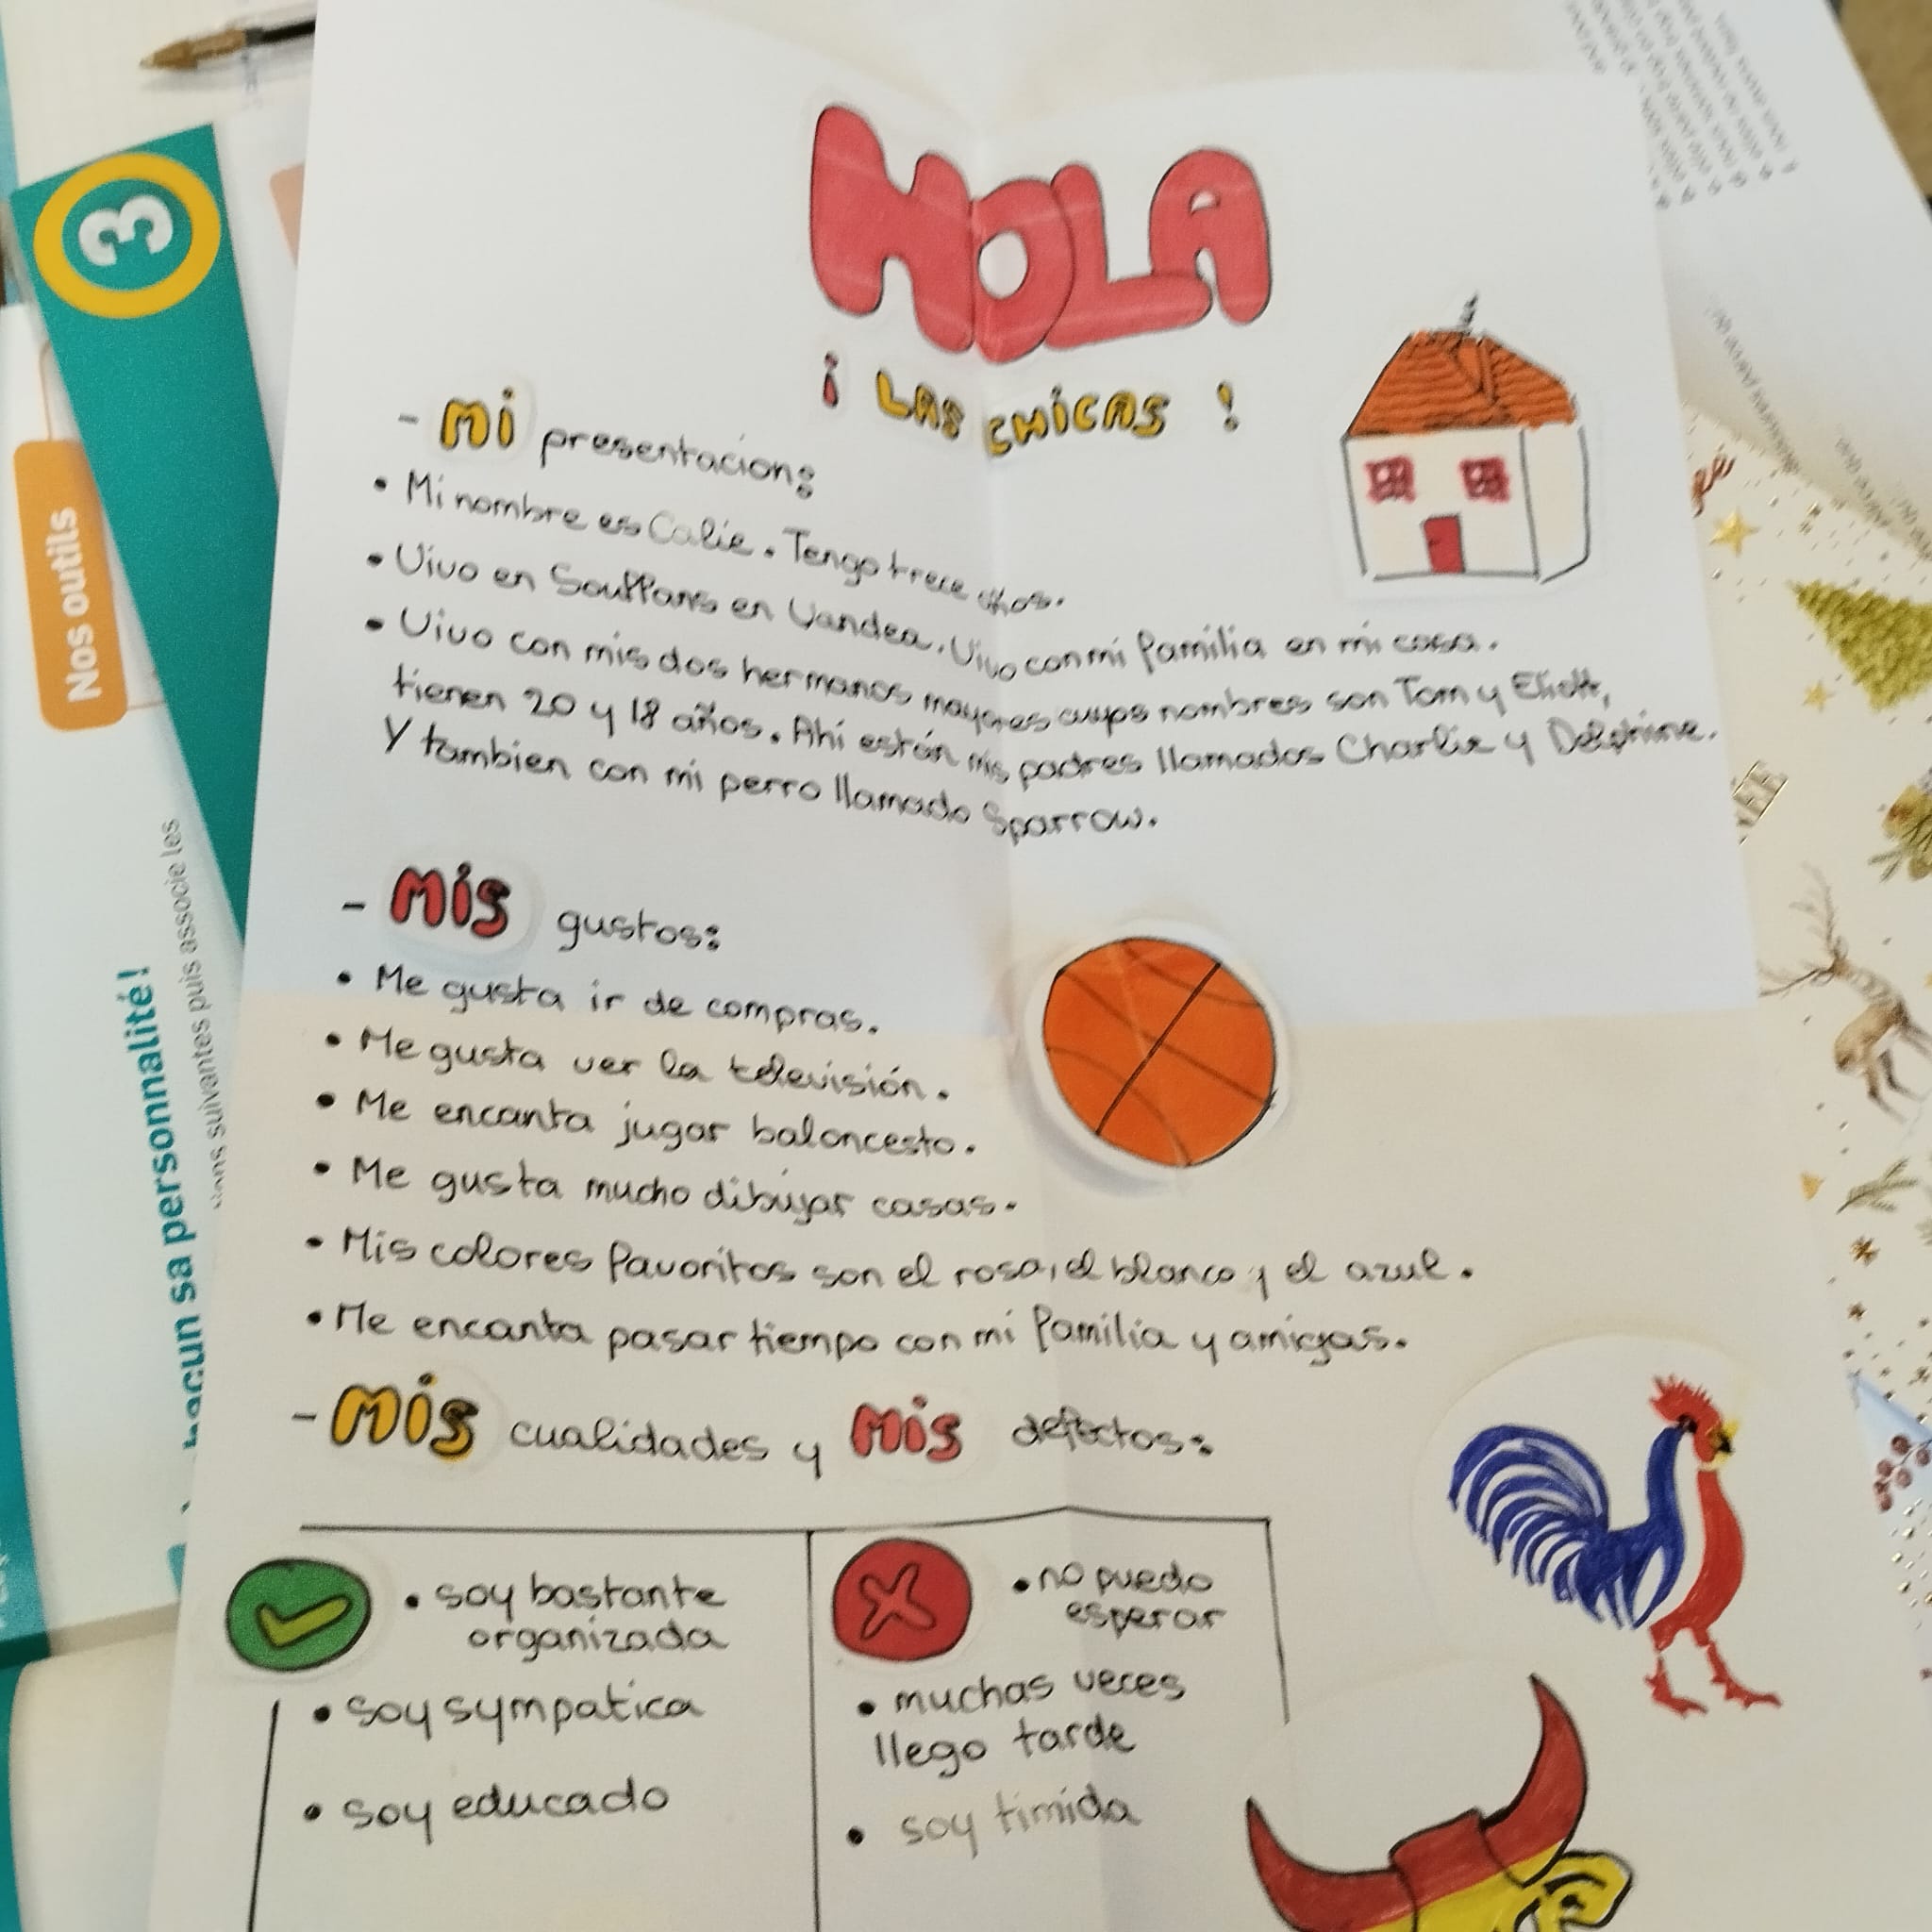 HOLA
¡ LAS CHICAS !
- Mi presentacion:
• Mi nombre es Calie. Tengo trece años.
• Vivo en Soullans en Vandea. Vivo con mi familia en mi casa.
• Vivo con mis dos hermanos mayores cuyos nombres son Tom y Eliott,
tienen 20 y 18 años. Ahí están mis padres llamados Charlie y Delphine.
Y tambien con mi perro llamado Sparrow.
- Mis gustos:
• Me gusta ir de compras.
• Me gusta ver la televisión.
• Me encanta jugar baloncesto.
• Me gusta mucho dibujar casas.
• Mis colores favoritos son el rosa, el blanco y el azul.
• Me encanta pasar tiempo con mi familia y amigas.
- Mis cualidades y Mis defectos:
• soy bastante
organizada
• soy sympatica
• soy educado
• no puedo
esperar
• muchas veces
llego tarde
• soy timida
3
Nos outils
chacun sa personnalité !
suivantes puis associe les